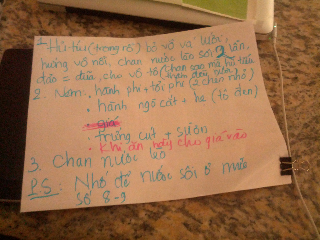 1. Hủ tiú (trong rổ) bỏ vô vá lưới,
nhúng vô nồi, chan nước lèo sôi 2 lần,
đảo = đũa, cho vô tô (chan cạn mà hủ tiếu
2. Nêm, hành phi + tỏi phi (2 chén nhỏ)
• hành ngò cắt + hẹ (tô đen)
• giá
• trứng cút + sườn
• Khi ăn hãy cho giá vào
3. Chan nước lèo
P.S: Nhớ để nước sôi ở mức
số 8-9